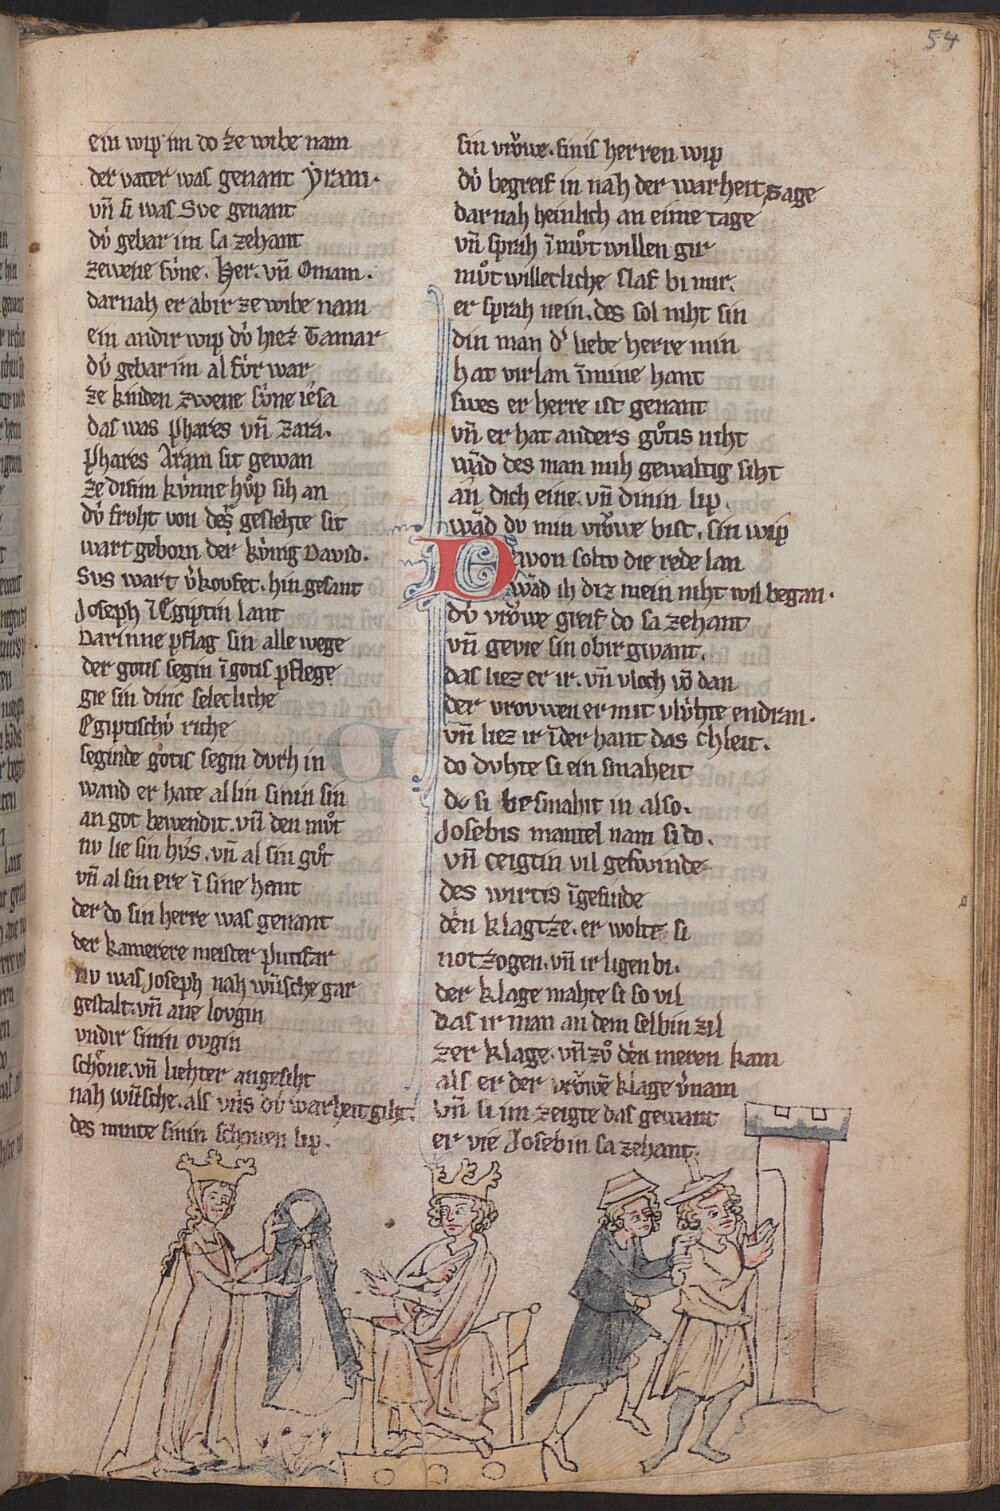 54
ein wip im do ze wibe nam
der vater was genant Yram.
vn̄ si was Sve genant
dv̍ gebar im sa zehant
zewene sv̍ne. Her. vn̄ Onam.
darnah er abir ze wibe nam
ein andir wip dv̍ hiez Tamar
dv̍ gebar im al fv̍r war
ze kinden zwene sv̍ne iesa
das was phares vn̄ Zara.
phares Aram sit gewan
ze disim kv̍nne hv̊p sih an
dv̍ froht von des geslehte sit
wart geborn der kv̍nig David.
Svs wart v̍kovfet. hin gesant
Joseph ī Egiptin lant
Darinne pflag sin alle wege
der gotis segin ī gotis pflege
gie sin dinc selecliche
Egiptischv̍ riche
seginde gotis segin dvrh in
wand er hate al sin sinin sin
an got bewendit. vn̄ den mv̊t
nv lie sin hvs. vn̄ al sin gv̊t
vn̄ al sin ere ī sine hant
der do sin herre was genant
der kamerere meister putifar
nv was Joseph nah wv̍nsche gar
gestalt. vn̄ ane lovgin
vndir sinin ovgin
schöne. vn̄ liehter angesiht
nah wv̍nsche. als vns dv̍ warheit giht.
des minte sinin schonen lip.
sin vrowe. sinis herren wip
dv̍ begreif in nah der warheit sage
darnah heinlich an eime tage
vn̄ sprah ī mv̊twillen gir
mv̊t willecliche slaf bi mir.
er sprah nein. des sol niht sin
din man d̍ liebe herre min
hat virlan ī mine hant
swes er herre ist genant
vn̄ er hat anders gv̊tis niht
wād des man mih gewaltig siht
an dich eine. vn̄ dinin lip.
wād dv min vrowe bist. sin wip
Davon solto die rede lan
wād ih diz mein niht wil began.
dv̍ vrowe greif do sa zehant
vn̄ gevie sin obir gwant.
das liez er ir. vn̄ vloch vō dan
der vrovwen er mit vlv̍hte endran.
vn̄ liez ir ī der hant das chleit.
do dvhte si ein smaheit
do si besmahit in also.
Josebis mantel nam si do.
vn̄ ceigtin vil geswinde
des wirtis īgesinde
den klagtze. er wolte si
notzogen. vn̄ ir ligen bi.
der klage mahte si so vil
das ir man an dem selbin zil
zer klage. vn̄ zv̊ den meren kam
als er der vrowē klage v̍nam
vn̄ si im zeigte das gewant
er vie Josebin sa zehant.